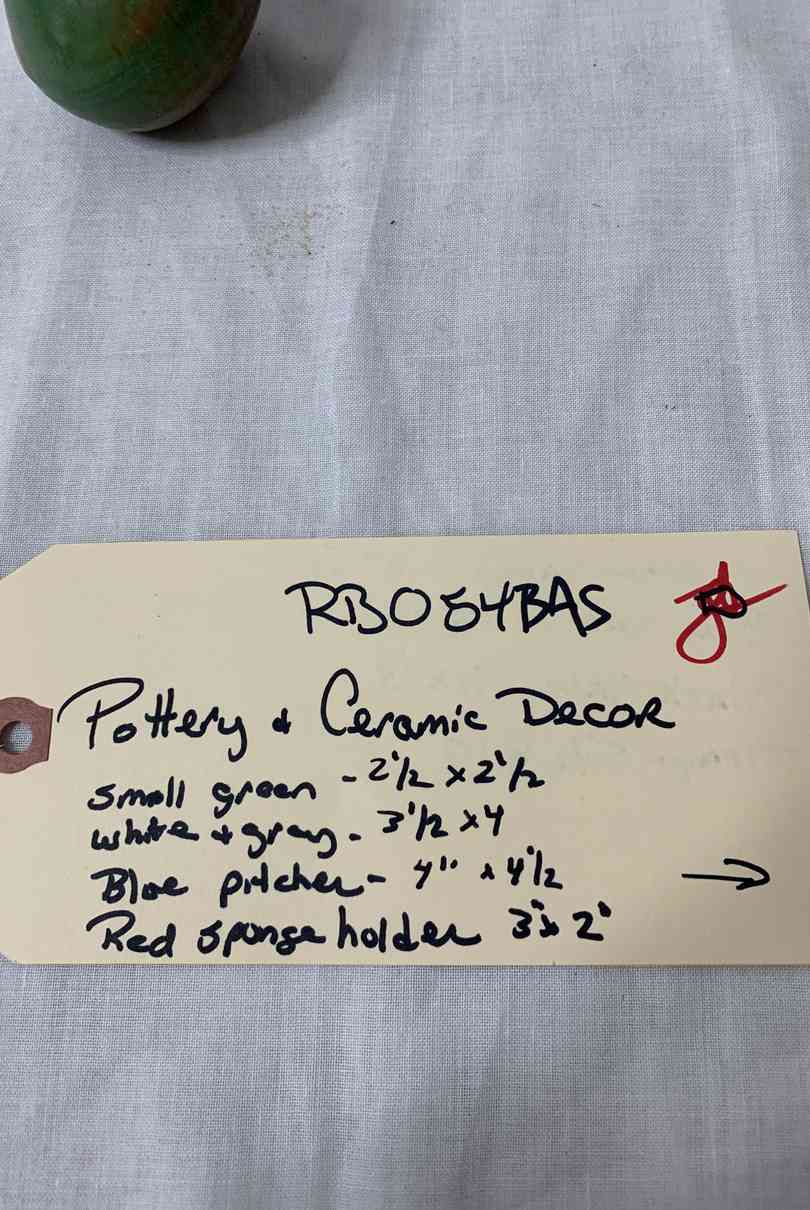 RB054BAS
Pottery & Ceramic Decor
small green - 2 1/2 x 2 1/2
white + gray - 3 1/2 x 4
Blue pitcher - 4" x 4 1/2
Red sponge holder 3" x 2"